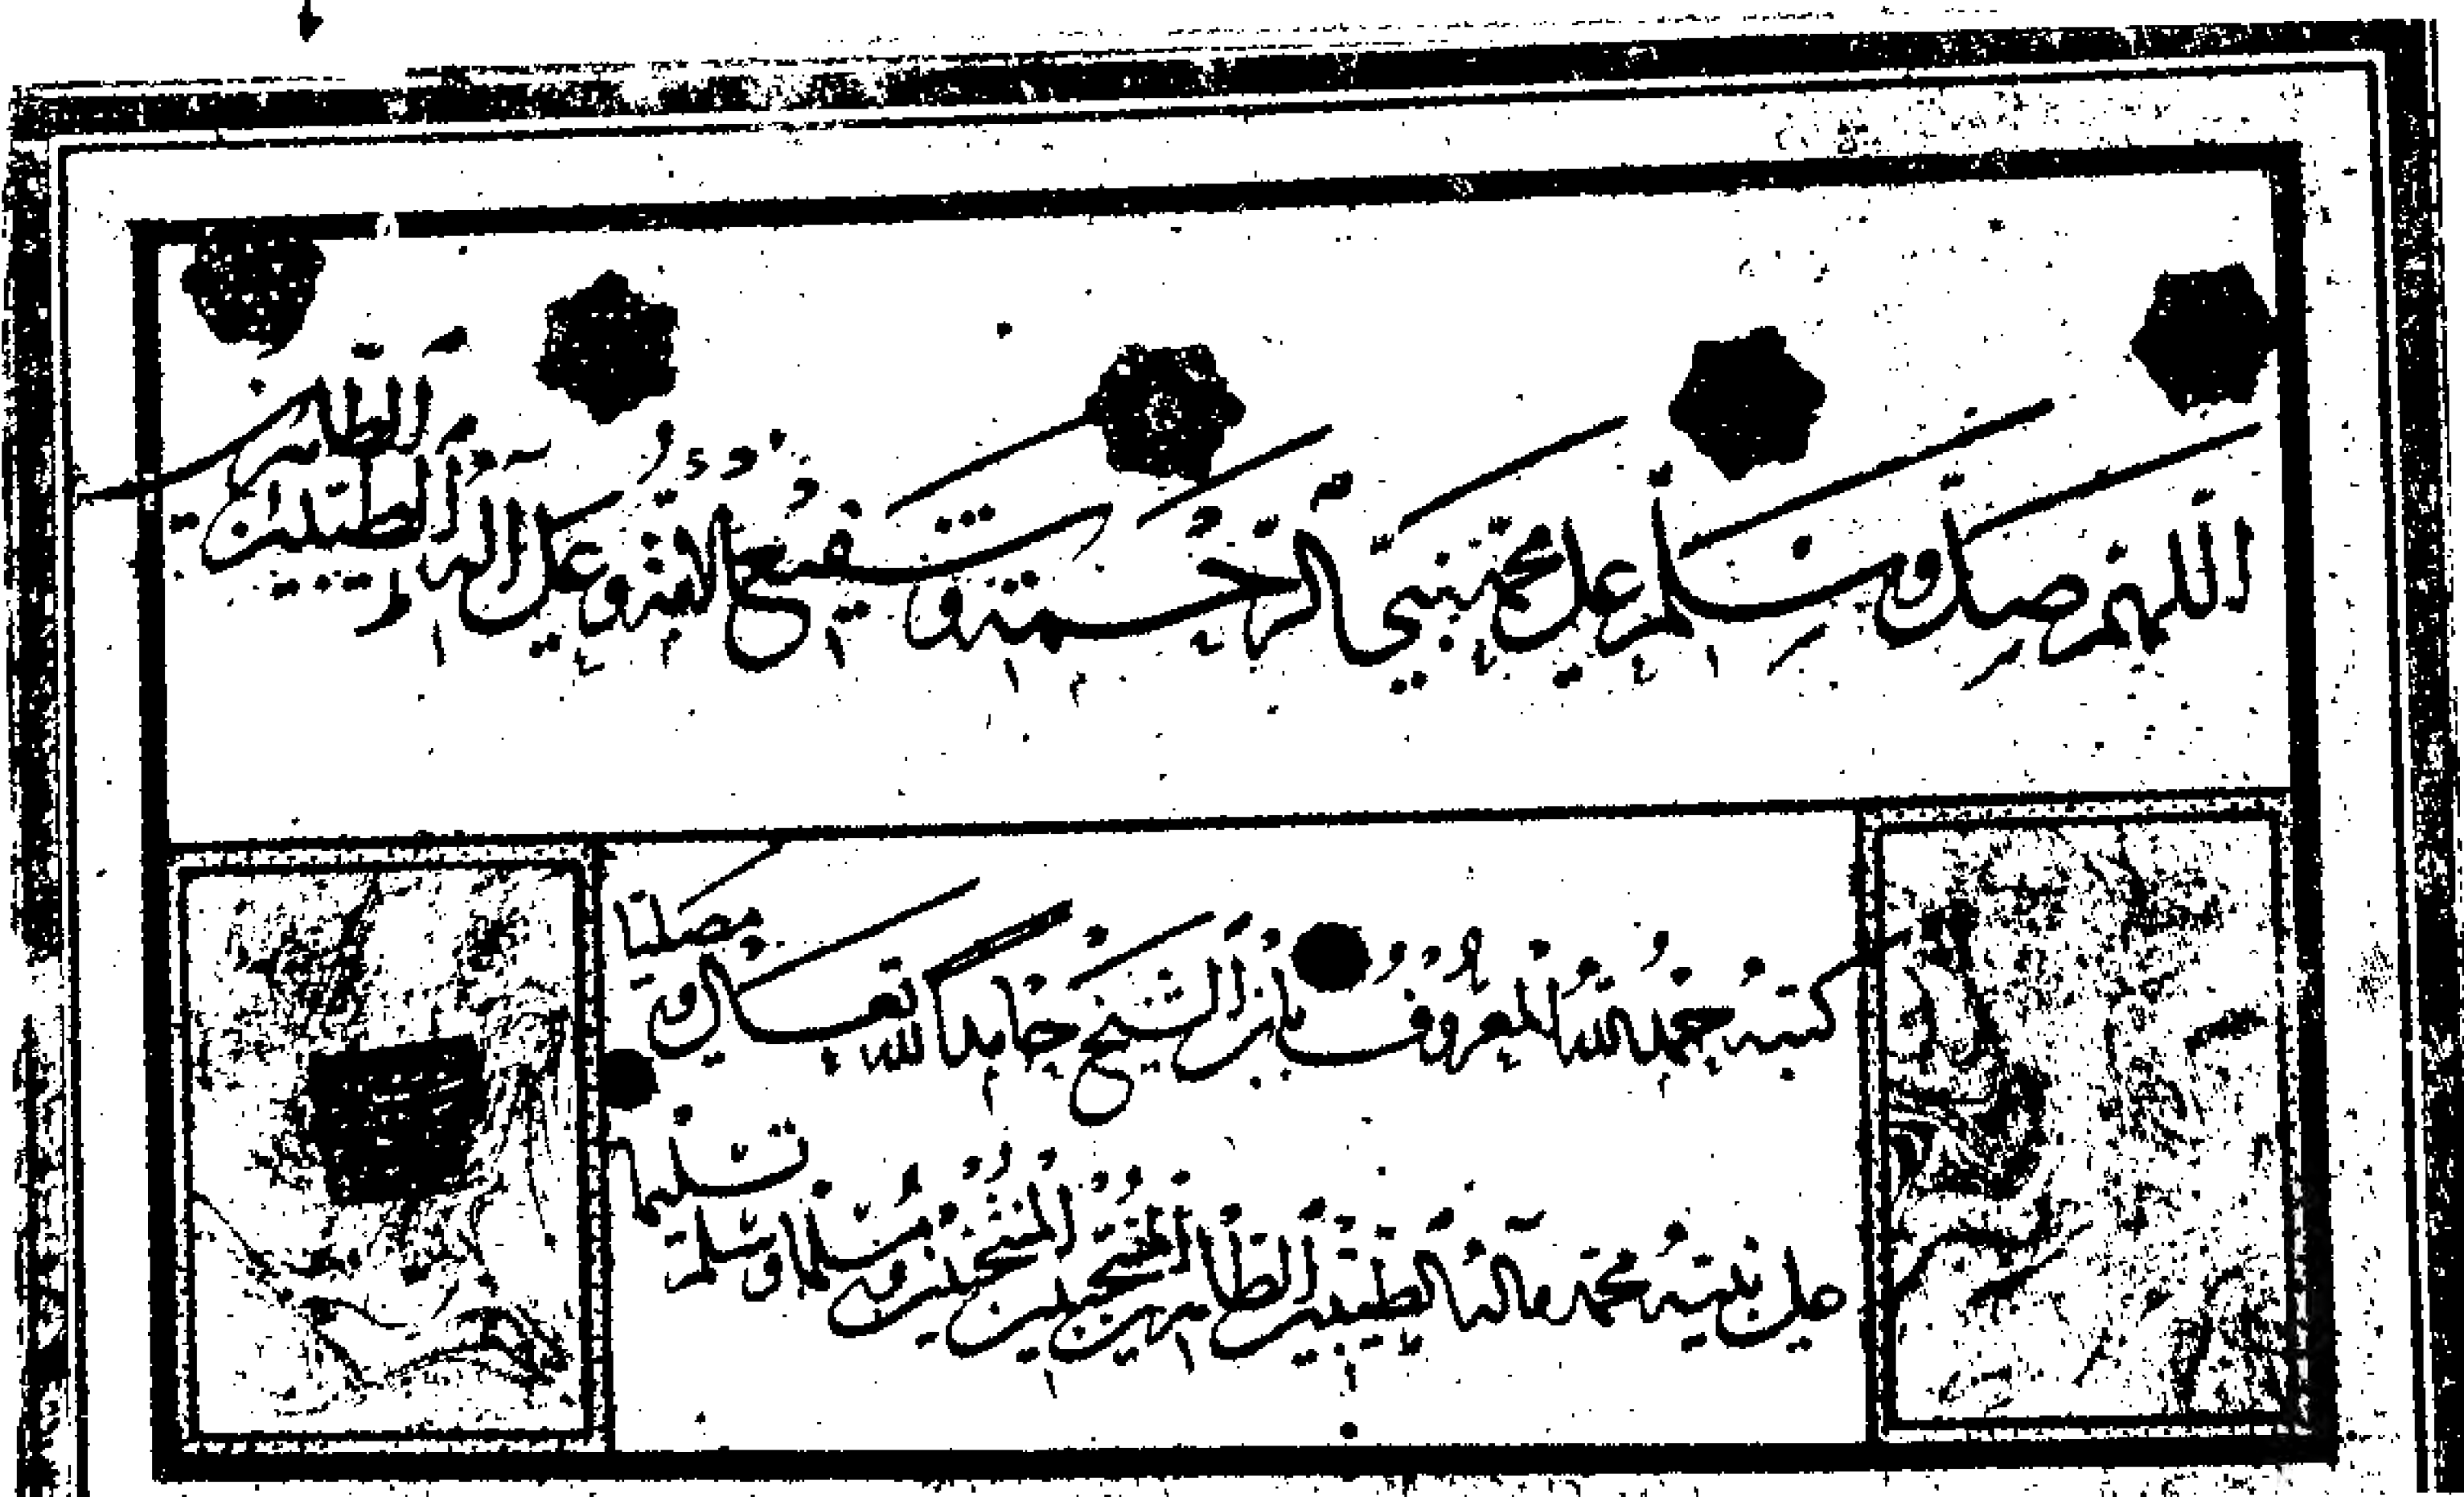 اللهم صل وسلم على محمد نبي الرحمة وشفيع الامة وعلى اله الطيبين الطاهرين
كتبه حمد الله المعروف بابن الشيخ حامدا لله تعالى و مصليا
على نبيه محمد وآله الطيبين الطاهرين المنتجبين المنتخبين و مسلما وسلم تسليما